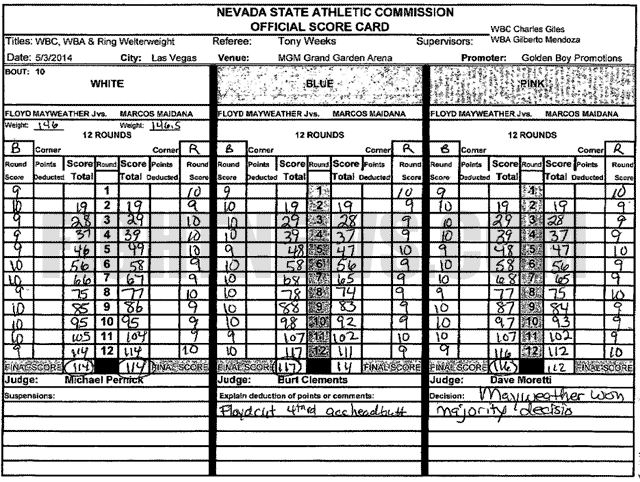 NEVADA STATE ATHLETIC COMMISSION
OFFICIAL SCORE CARD
WBC Charles Giles
Titles: WBC, WBA & Ring Welterweight Referee: Tony Weeks Supervisors: WBA Gilberto Mendoza
Date: 5/3/2014 City: Las Vegas Venue: MGM Grand Garden Arena Promoter: Golden Boy Promotions
BOUT: 10
WHITE BLUE PINK
FLOYD MAYWEATHER Jvs. MARCOS MAIDANA FLOYD MAYWEATHER Jvs. MARCOS MAIDANA FLOYD MAYWEATHER Jvs. MARCOS MAIDANA
Weight: 146 Weight: 146.5
12 ROUNDS 12 ROUNDS 12 ROUNDS
B Corner Corner R B Corner Corner R B Corner Corner R
Round Points Score Round Score Points Round Round Points Score Round Score Points Round Round Points Score Round Score Points Round
Score Deducted Total Total Deducted Score Score Deducted Total Total Deducted Score Score Deducted Total Total Deducted Score
9 1 10 9 1 10 9 1 10
10 19 2 19 9 10 19 2 19 9 10 19 2 19 9
9 28 3 29 10 10 29 3 28 9 10 29 3 28 9
9 37 4 39 10 10 39 4 37 9 10 39 4 37 9
9 46 5 49 10 9 48 5 47 10 9 48 5 47 10
10 56 6 58 9 10 58 6 56 9 10 58 6 56 9
10 66 7 67 9 10 68 7 65 9 10 68 7 65 9
9 75 8 77 10 10 78 8 74 9 9 77 8 75 10
10 85 9 86 9 10 88 9 83 9 10 87 9 84 9
10 95 10 95 9 10 98 10 92 9 10 97 10 93 9
10 105 11 104 9 9 107 11 102 10 10 107 11 102 9
9 114 12 114 10 10 117 12 111 9 116 12 112 10
FINAL SCORE 114 114 FINAL SCORE FINAL SCORE 117 111 FINAL SCORE FINAL SCORE 116 112 FINAL SCORE
Judge: Michael Pernick Judge: Burt Clements Judge: Dave Moretti
Suspensions: Explain deduction of points or comments: Decision: Mayweather won
Floyd cut 4th rnd acc headbutt majority decisio